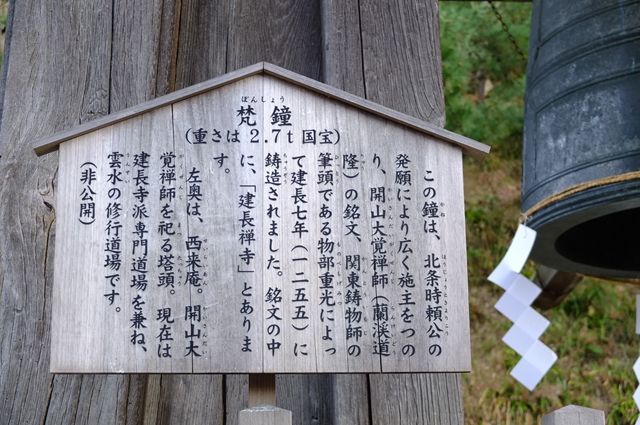 梵鐘
(重さは2.7t国宝)
この鐘は、北条時頼公の
発願により広く施主をつの
り、開山大覚禅師(蘭渓道
隆)の銘文、関東鋳物師の
筆頭である物部重光によっ
て建長七年(一二五五)に
鋳造されました。銘文の中
に、「建長禅寺」とありま
す。
左奥は、西来庵。開山大
覚禅師を祀る塔頭。現在は
建長寺派専門道場を兼ね、
雲水の修行道場です。
(非公開)